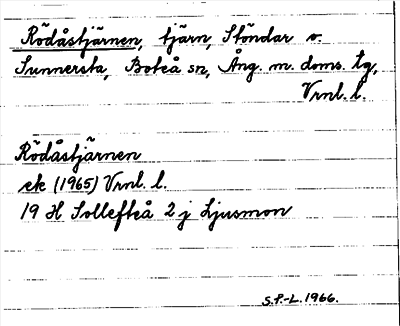 Rödåstjärnen, tjärn, Stöndar o.
Sunnersta, Boteå sn, Ång. m. doms. tg,
Vrnl. l.
Rödåstjärnen
ek (1965) Vrnl. l.
19 H Sollefteå 2 j Ljusmon
S.F.-L. 1966.